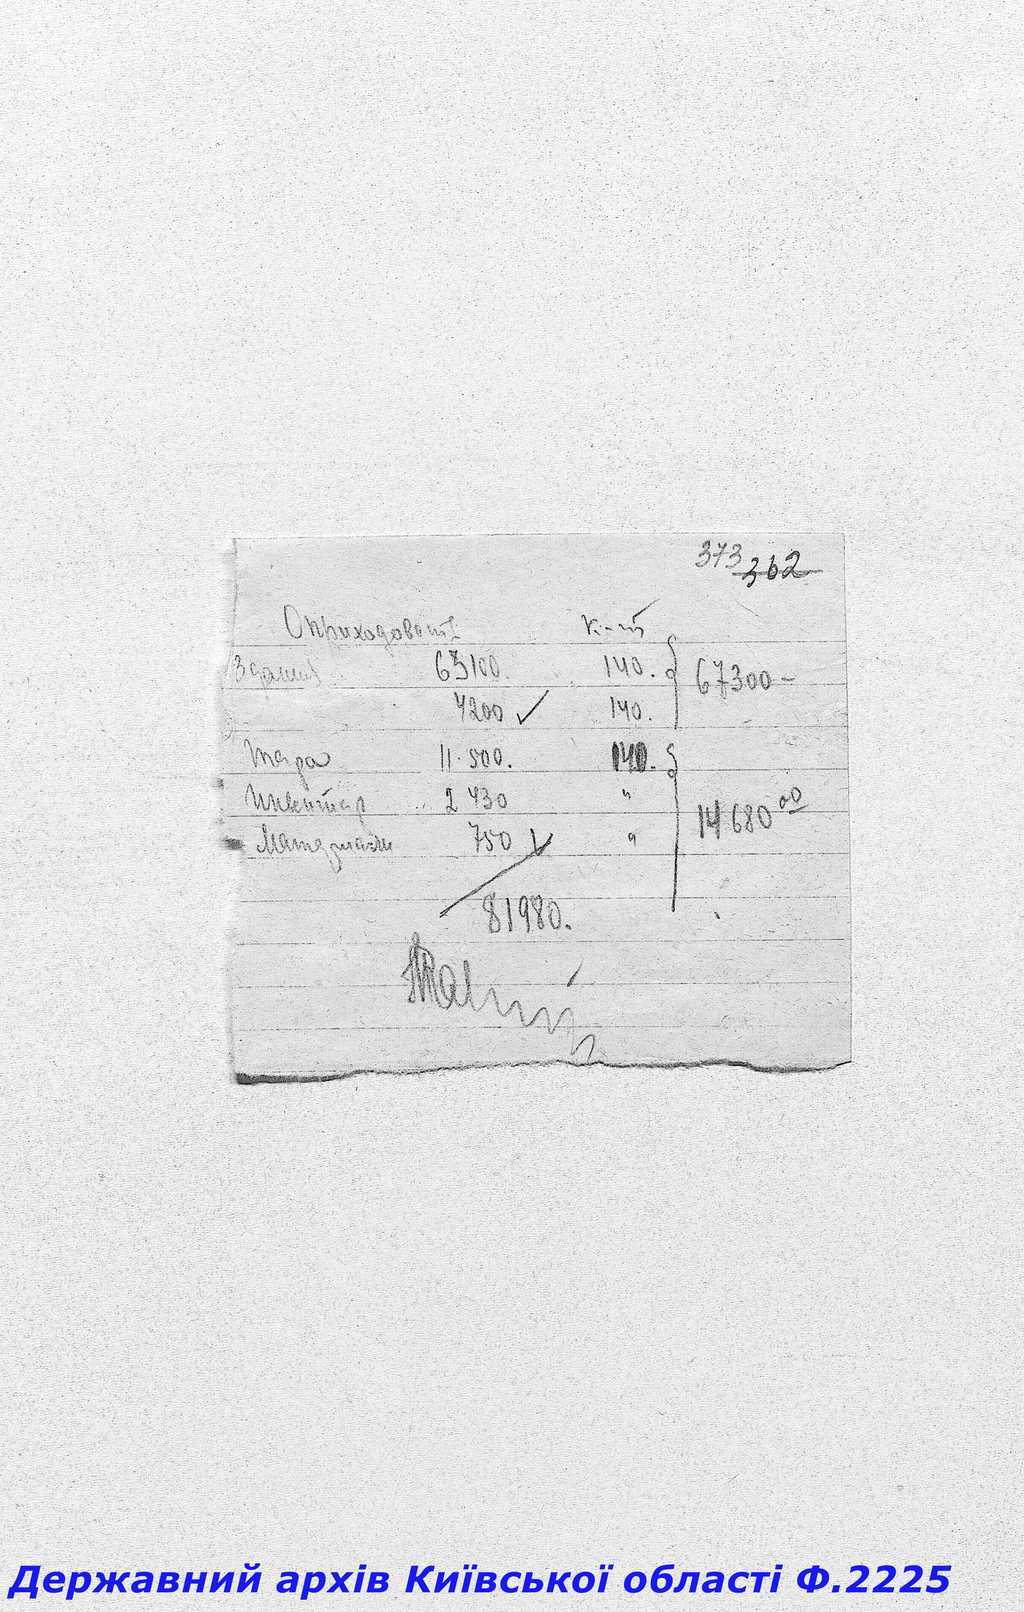 373 362
Оприходовать К-т
Здания 63100. 140. 67300-
4200 140.
Тара 11.500. 140.
Инвентар 2 430 " 14680 00
Материали 750 "
81980.
Державний архів Київської області Ф.2225